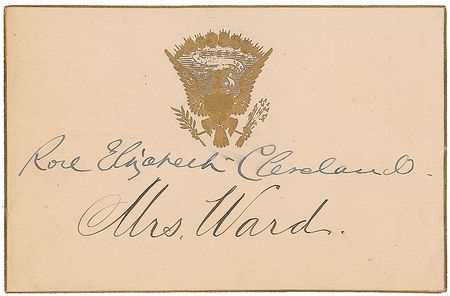 Rose Elizabeth Cleveland.
Mrs. Ward.